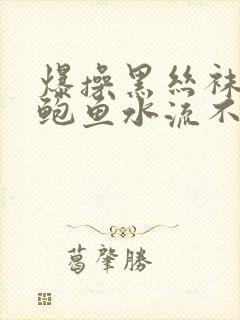 爆操黑丝袜
鲍鱼水流不
葛肇勝